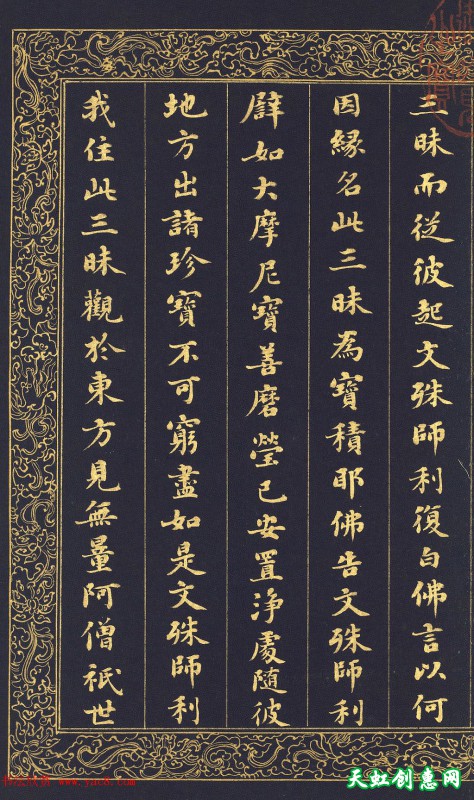 三昧而從彼起文殊師利復白佛言以何
因緣名此三昧為寶積耶佛告文殊師利
譬如大摩尼寶善磨瑩已安置淨處隨彼
地方出諸珍寶不可窮盡如是文殊師利
我住此三昧觀於東方見無量阿僧祇世
天虹创意网